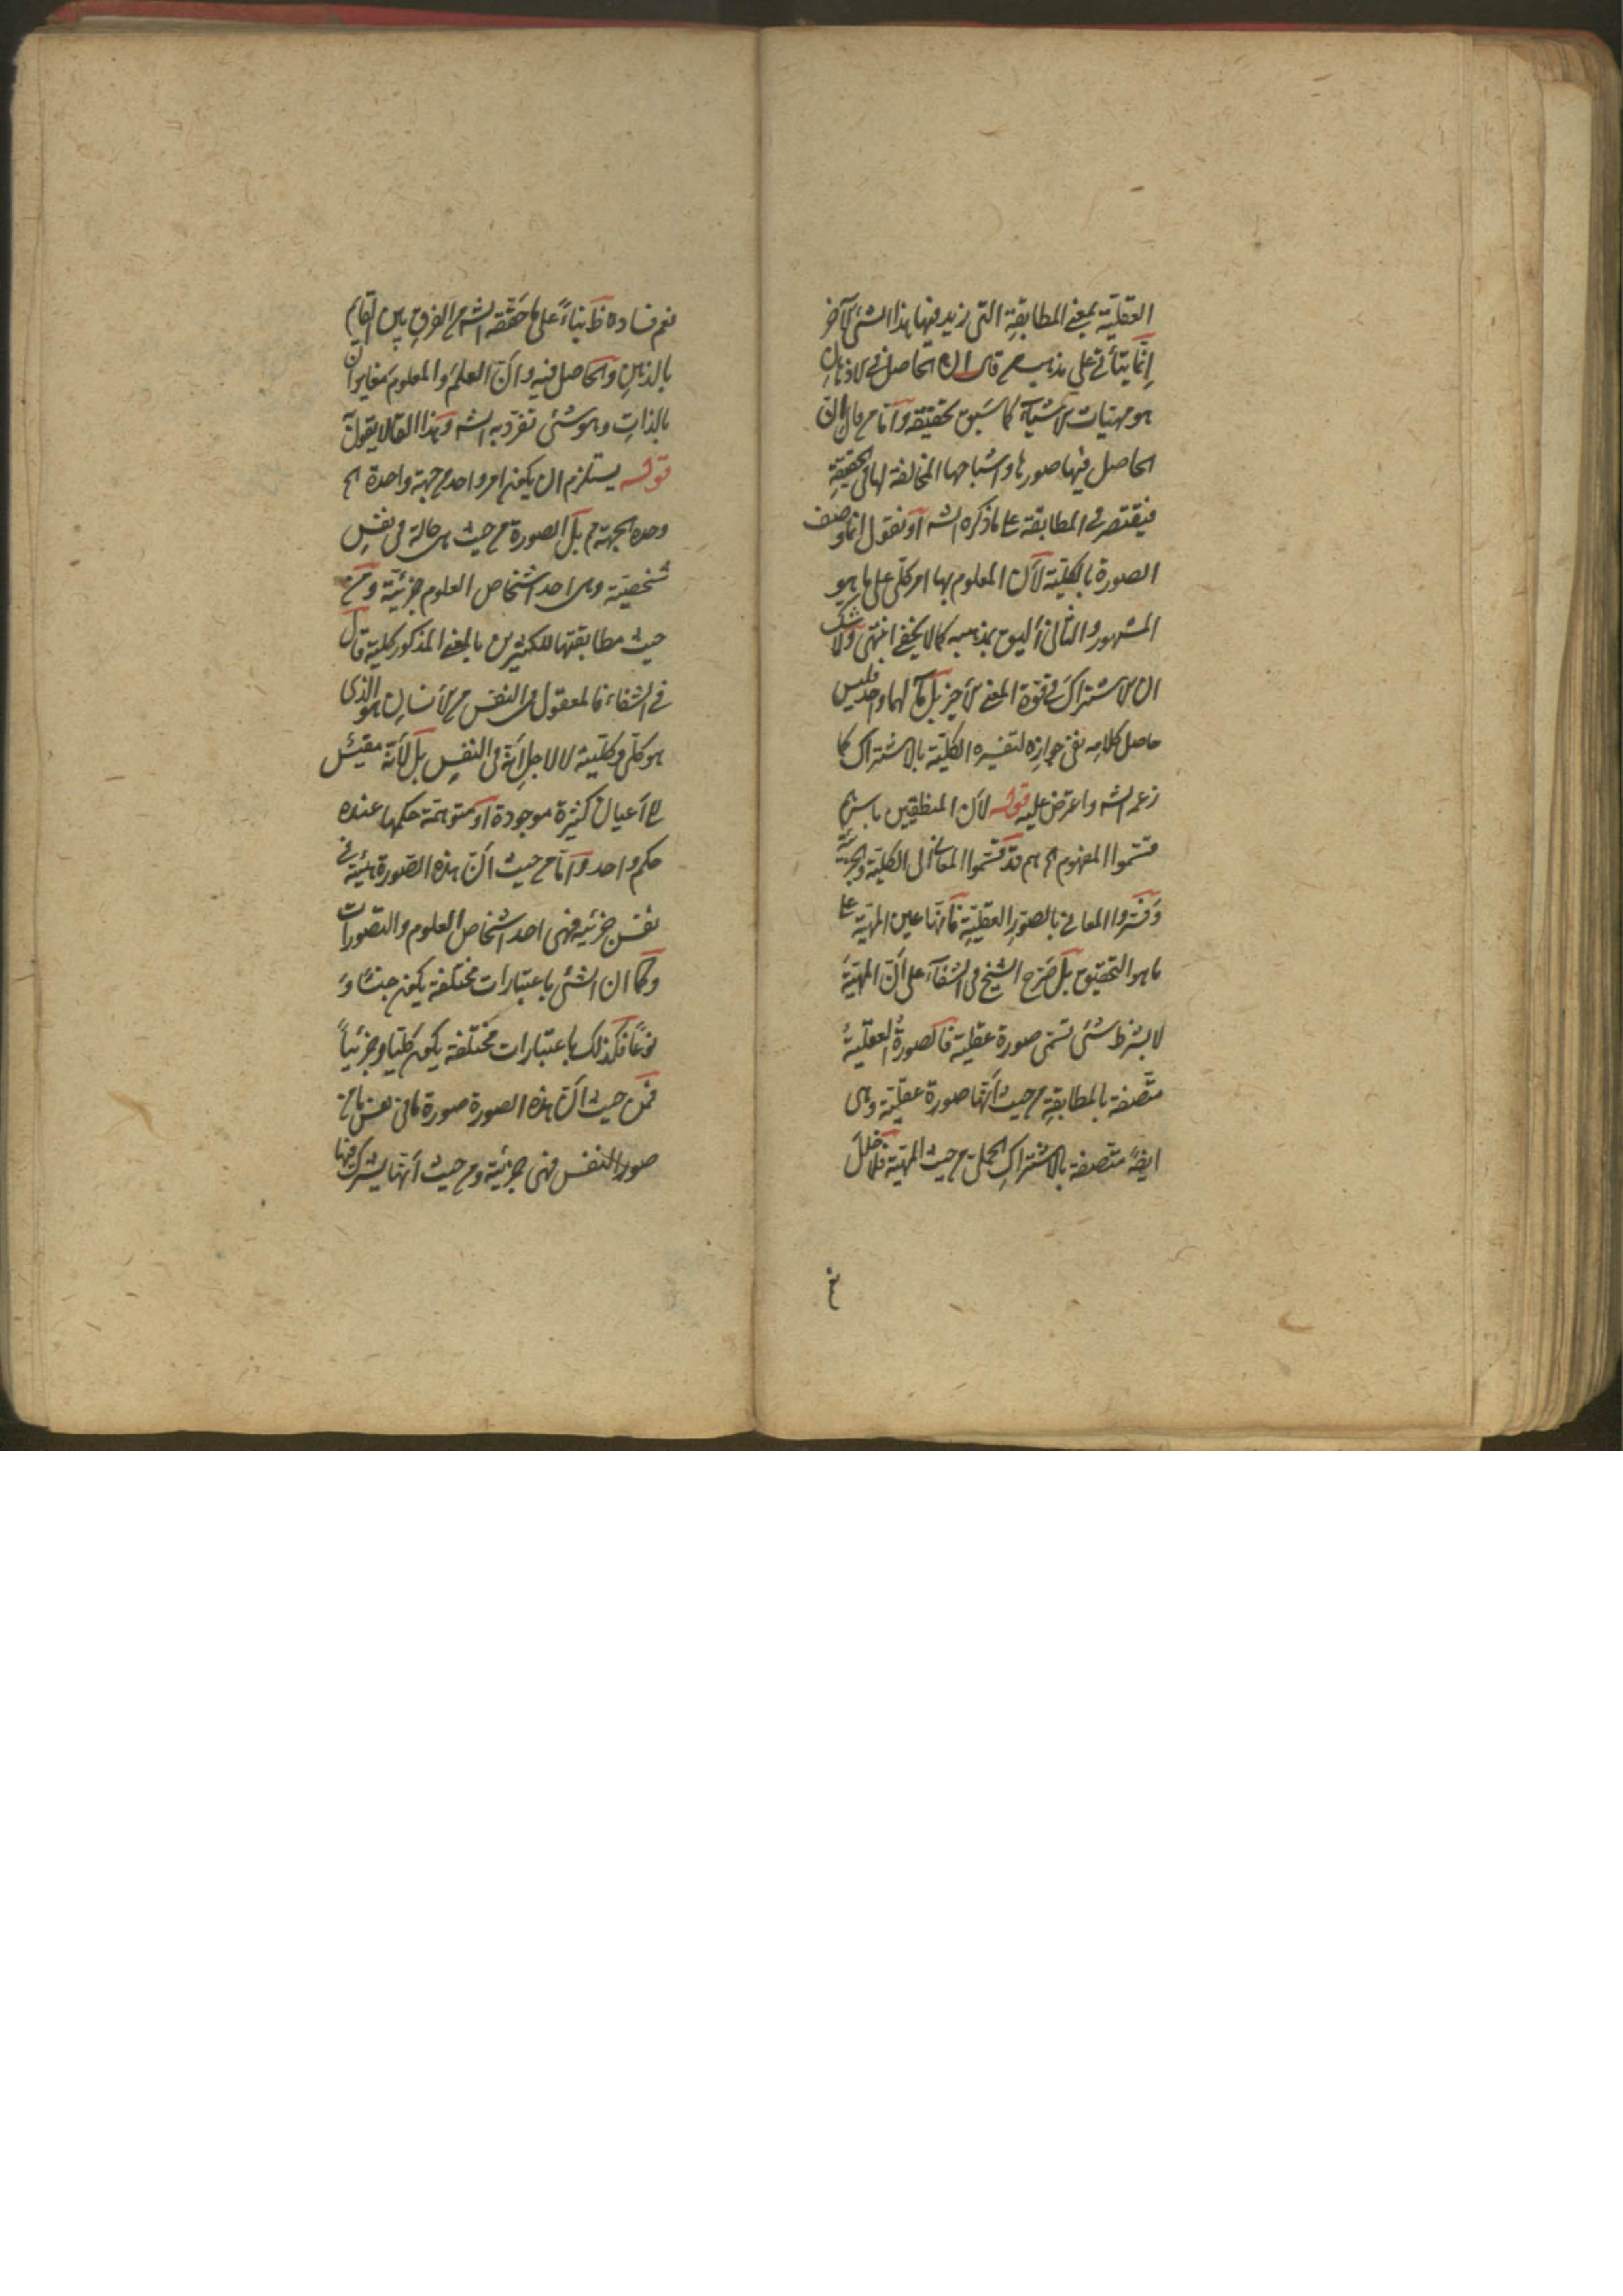 العقليّة بمعنى المطابقة التى زيد فيها هذا الشئ الآخر
إنّما يتأتى على مذهب من قال ان الحاصل فى الاذهان
هو مهيات الاشيآء كما سبق تحقيقه وآما من قال ان
الحاصل فيها صورها واشباحها المخالفة لها فى الحقيقة
فيقتصر فى المطابقة على ما ذكره الشه آو نقول انما وصف
الصورة بالكلية لآن المعلوم بها امر كلى على ما هو
المشهور والثانى أليق بمذهبه كما لا يخفى انتهى ولا شك
ان الاشتراك فى قوة المعنى الأخير بل مآلهما واحد فليس
حاصل كلامه نفى جوازه لتفسيره الكلية بالاشتراك كما
زعمه الشه واعترض عليه قوله لان المنطقيين باسرهم
قسّموا المفهوم الخ هم قد قسّموا المعانى الى الكلية والجزئية
وفسّروا المعانى بالصور العقلية فانها عين المهية على
ما هو التحقيق بل صرح الشيخ فى الشفآء على آنّ المهيّة
لا بشرط شئ تسمّى صورة عقلية فالصورة العقليّة
متّصفة بالمطابقة من حيث أنّها صورة عقليّة وهى
ايضً متصفة بالاشتراك الحملى من حيث المهية فلا خلل
نعم
نعم فساده ظ بناءً على ما حققه الشه من الفرق بين القايم
بالذهن والحاصل فيه وانّ العلم والمعلوم متغايران
بالذات وهو شئ تفرّد به الشه وهذا القائل لا يقول به
قوله يستلزم ان يكون امر واحد من جهة واحدة الخ
وحدة الجهة م بل الصورة من حيث هى حالة فى نفسٍ
شخصيّة وهى احد اشخاص العلوم جزئيّة ومن
حيث مطابقتها للكثيرين بالمعنى المذكور كلية قال
فى الشفاء فالمعقول فى النفس من الأنسان هو الذى
هو كلى وكليته لا لاجل أنه فى النفس بل لأنّه مقيس
الى أعيان كثيرة موجودة او متوهمة حكمها عنده
حكم واحد وآما من حيث انّ هذه الصورة هيئة فى
نفس جزئية فهى احد اشخاص العلوم والتصورات
وكما ان الشئ باعتبارات مختلفة يكون جنسًا و
نوعًا فكذلك باعتبارات مختلفة يكون كليّا وجزئياً
فمن حيث انّ هذه الصورة صورة ما فى نفس ما من
صور النفس فهى جزئية ومن حيث أنّها يشترك فيها